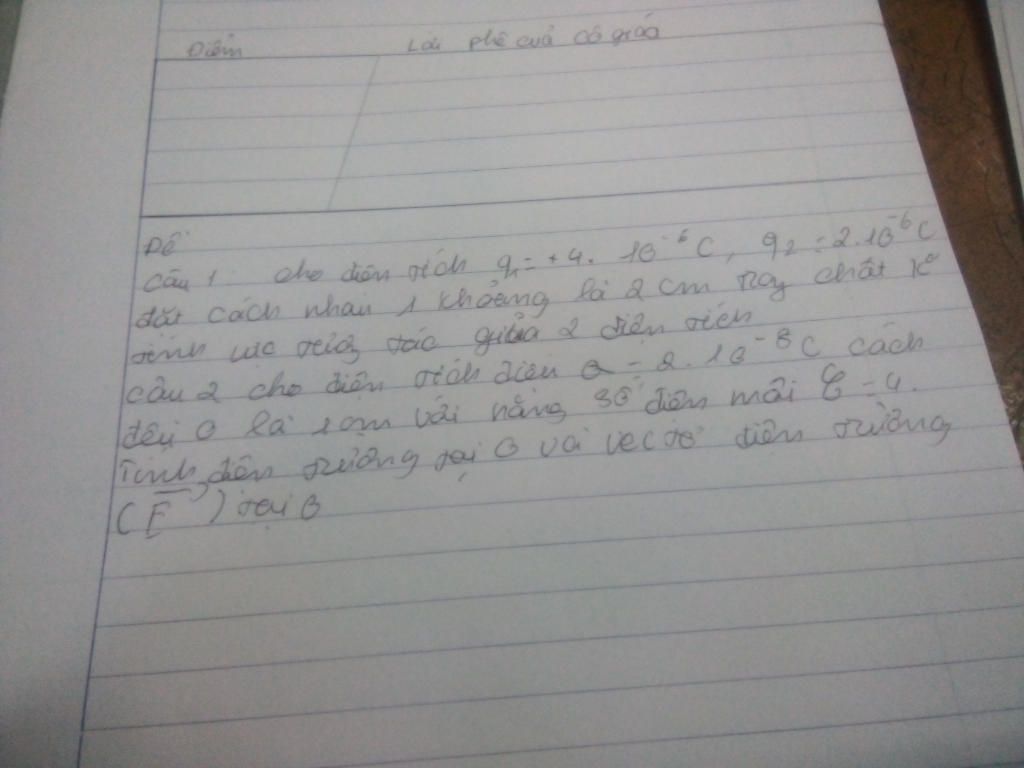 Điểm Lời phê của cô giáo
Đề
Câu 1: cho điện tích q₁ = +4. 10⁻⁶ C, q₂ = 2.10⁻⁶C
đặt cách nhau 1 khoảng là 2 cm chất
tính lực tương tác giữa 2 điện tích
câu 2 cho điện tích điểm Q = 2. 10⁻⁸C cách
là 1cm với hằng số điện môi ε = 4.
Tính điện trường tại và vectơ điện trường
(E⃗) tại